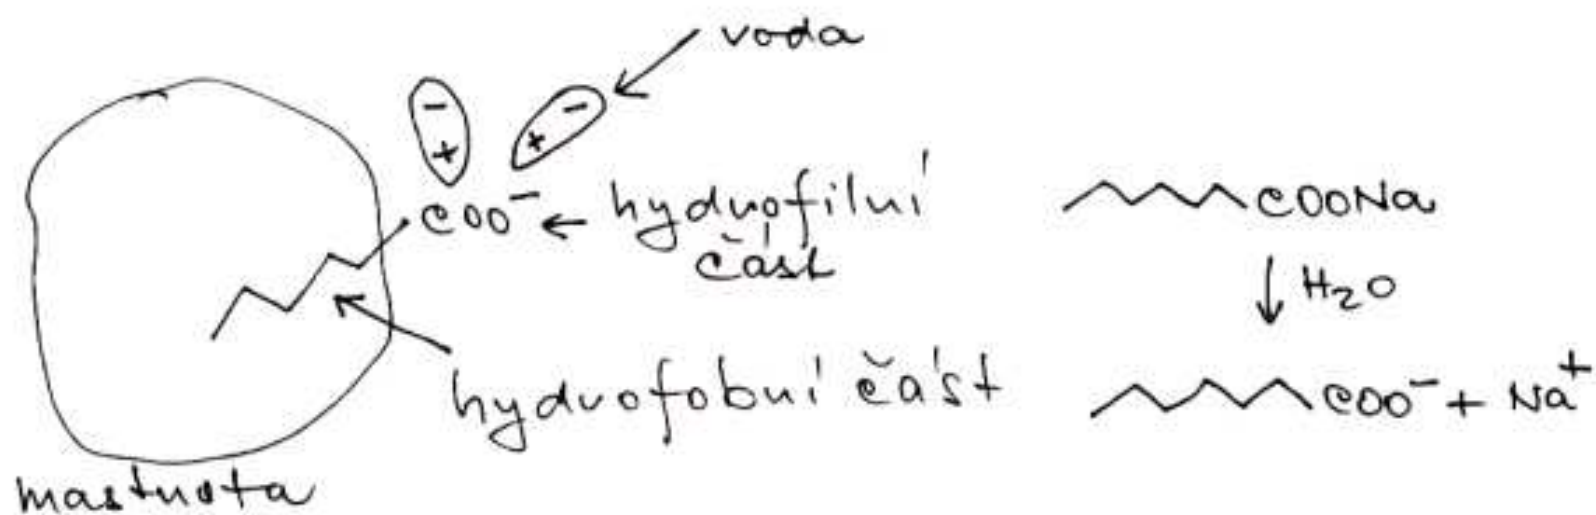 voda
- -
+ +
COO⁻ ← hydrofilní
část
hydrofobní část
mastnota
COONa
↓ H₂O
COO⁻ + Na⁺